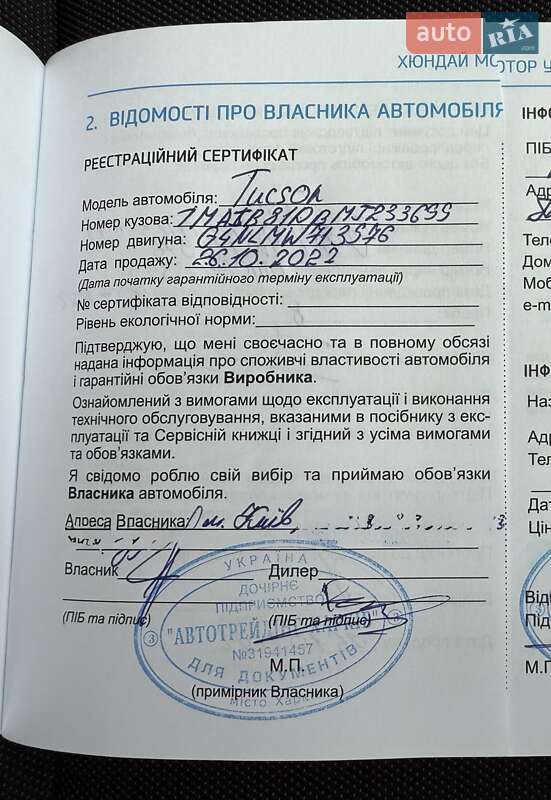 auto RIA.com
ХЮНДАЙ МОТОР У
2. ВІДОМОСТІ ПРО ВЛАСНИКА АВТОМОБІЛЯ
РЕЕСТРАЦІЙНИЙ СЕРТИФІКАТ
Модель автомобіля: Tucson
Номер кузова:
Номер двигуна:
Дата продажу: 26.10.2022
(Дата початку гарантійного терміну експлуатації)
№ сертифіката відповідності:
Рівень екологічної норми:
Підтверджую, що мені своєчасно та в повному обсязі
надана інформація про споживчі властивості автомобіля
і гарантійні обов'язки Виробника.
Ознайомлений з вимогами щодо експлуатації і виконання
технічного обслуговування, вказаними в посібнику з екс-
плуатації та Сервісній книжці і згідний з усіма вимогами
та обов'язками.
Я свідомо роблю свій вибір та приймаю обов'язки
Власника автомобіля.
Адреса Власника м. Київ,
Власник Дилер
(ПІБ та підпис) (ПІБ та підпис)
М.П.
(примірник Власника)
УКРАЇНА
ДОЧІРНЄ
ПІДПРИЄМСТВО
№31941457
ДЛЯ ДОКУМЕНТІВ
місто Харк
ІНФО
ПІБ
Адр
Теле
Дом
Моб
e-m
ІНФ
Наз
Адр
Тел
Дат
Цін
Відп
Під
М.П